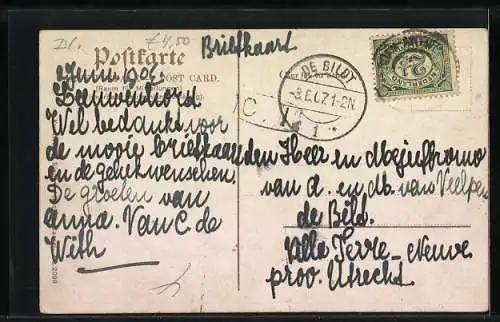 Dl.
€4,50
Briefkaart
Postkarte
POST CARD.
Juni 1907
Leeuwenhorst
Wel bedankt voor
de mooie briefkaart
en de gelukwenschen.
De groeten van
Anna. Van C. de
With
DE BILDT
1-2N
1
NEDERLAND
2½
den Heer en Mejuffrouw
van d. en M. van
de Bild.
Villa Terre-Neuve
prov. Utrecht